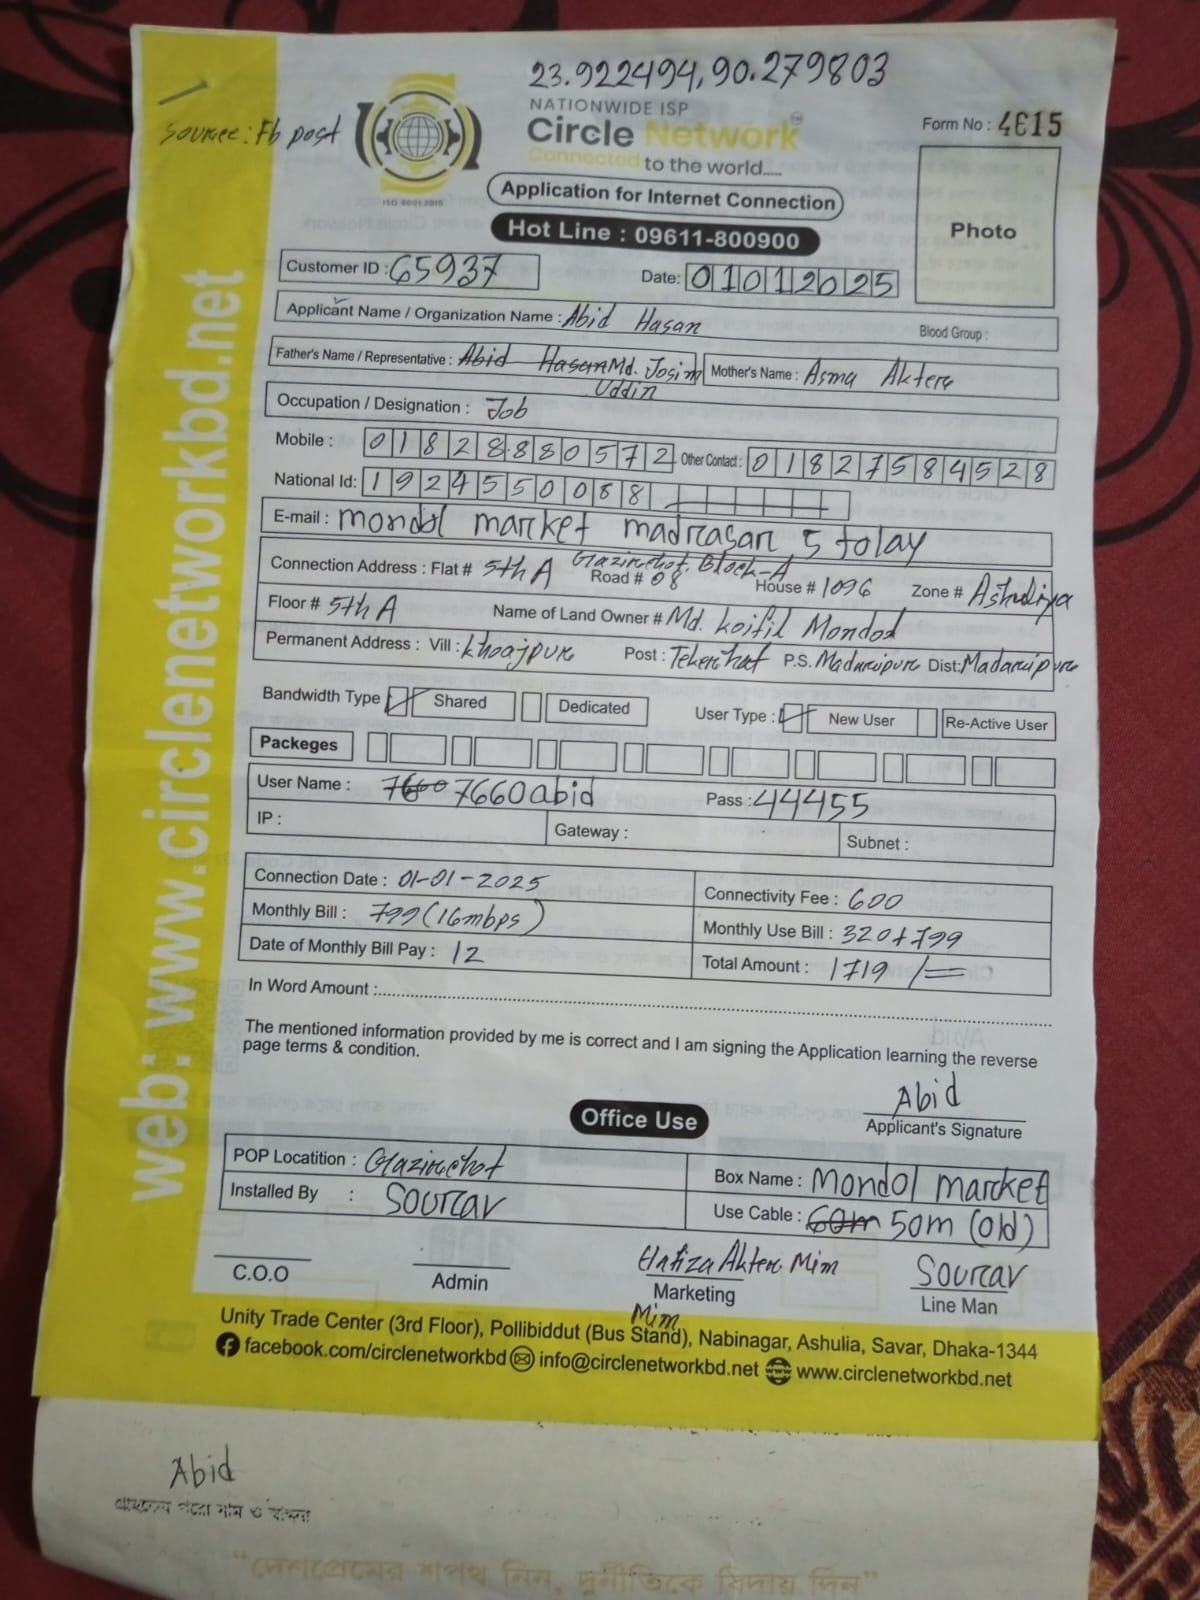 23.922494, 90.279803
source: Fb post
NATIONWIDE ISP
Circle Network
Connected to the world.....
ISO 9001:2015
Form No : 4615
Photo
Application for Internet Connection
Hot Line : 09611-800900
Customer ID : 65937
Date: 01012025
Applicant Name / Organization Name : Abid Hasan Blood Group :
Father's Name / Representative : Abid Hasan Md. Josim Uddin Mother's Name : Asma Akter
Occupation / Designation : Job
Mobile : 01828880572 Other Contact : 01827584528
National Id: 1924550088
E-mail : mondol market madrasar 5 tolay
Gazirchot, Block-A
Connection Address : Flat # 5th A Road # 08 House # 1096 Zone # Ashuliya
Floor # 5th A Name of Land Owner # Md. Koifil Mondol
Permanent Address : Vill : Khoajpur Post : Tekerhat P.S. Madaripur Dist: Madaripur
Bandwidth Type Shared Dedicated User Type : New User Re-Active User
Packeges
User Name : 7660 7660abid Pass : 44455
IP : Gateway : Subnet :
Connection Date : 01-01-2025 Connectivity Fee : 600
Monthly Bill : 799 (16mbps) Monthly Use Bill : 320+799
Date of Monthly Bill Pay : 12 Total Amount : 1719/=
In Word Amount :
The mentioned information provided by me is correct and I am signing the Application learning the reverse
page terms & condition.
Abid
Applicant's Signature
Office Use
POP Locatition : Gazirchot Box Name : Mondol market
Installed By : Sourav Use Cable : 60m 50m (old)
C.O.O
Admin
Hafiza Akter Mim
Marketing
Mim
Sourav
Line Man
Unity Trade Center (3rd Floor), Pollibiddut (Bus Stand), Nabinagar, Ashulia, Savar, Dhaka-1344
facebook.com/circlenetworkbd info@circlenetworkbd.net www.circlenetworkbd.net
web: www.circlenetworkbd.net
Abid
"দেশপ্রেমের শপথ নিন, দুর্নীতিকে বিদায় দিন"